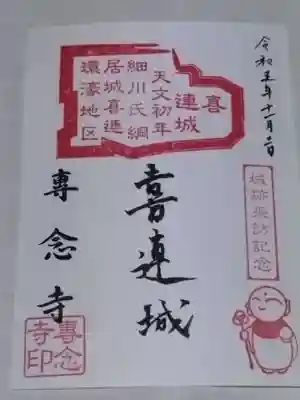 令和五年十一月二日
喜連城
天文初年
細川氏綱
居城喜連
環濠地区
城跡探訪記念
喜連城
專念寺
專念
寺印